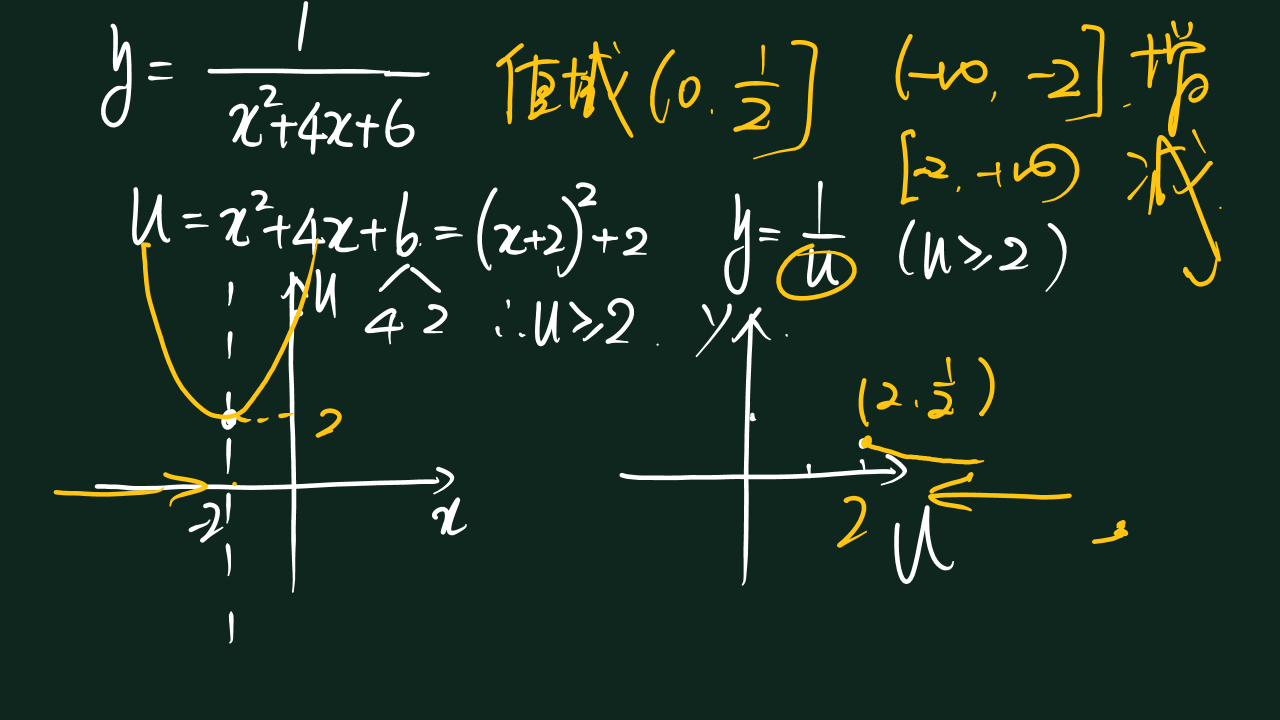 y = 1/(x²+4x+6)
值域 (0, 1/2]
(-∞, -2] 增
[-2, +∞) 减
u = x²+4x+6 = (x+2)²+2
4 2
∴ u ≥ 2
y = 1/u (u ≥ 2)
u
2
-2
x
y
(2, 1/2)
2
u